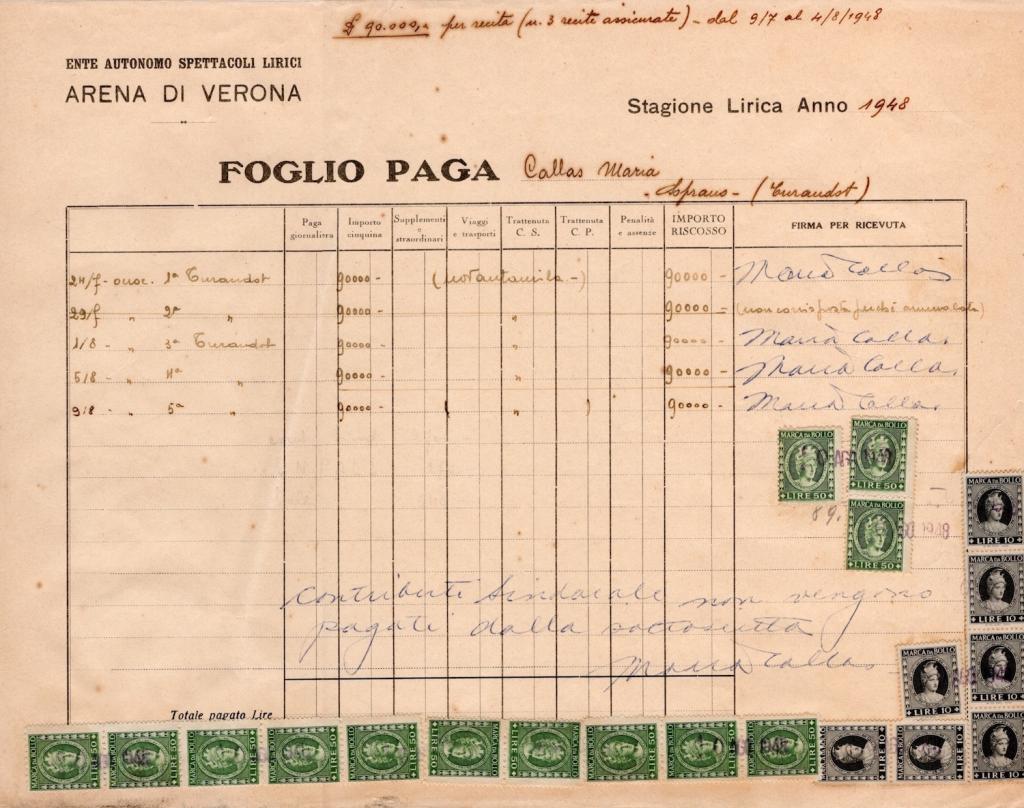 ₤ 90.000,- per recita (n. 3 recite assicurate) - dal 9/7 al 4/8/1948
ENTE AUTONOMO SPETTACOLI LIRICI
ARENA DI VERONA
Stagione Lirica Anno 1948
FOGLIO PAGA Callas Maria
- Soprano - (Turandot)
Paga giornaliera Importo cinquina Supplementi e straordinari Viaggi e trasporti Trattenuta C. S. Trattenuta C. P. Penalità e assenze IMPORTO RISCOSSO FIRMA PER RICEVUTA
1ª Turandot 90000 - (novantamila -) 90000 - Maria Callas
2ª " 90000 - " 90000 = (non corrisposta perché ammalata)
1/8 - " 3ª Turandot 90000 - " 90000 - Maria Callas
5/8 - " 4ª " 90000 - " 90000 - Maria Callas
9/8 - " 5ª " 90000 - ( " ) 90000 - Maria Callas
MARCA DA BOLLO MARCA DA BOLLO
LIRE 50 LIRE 50
MARCA DA BOLLO
LIRE 50
1948
MARCA DA BOLLO
LIRE 10
LIRE 10
contributi sindacale non vengono
pagati dalla sottoscritta
Maria Callas
MARCA DA BOLLO
LIRE 10
MARCA DA BOLLO
LIRE 10
Totale pagato Lire
MARCA DA BOLLO LIRE 50 MARCA DA BOLLO LIRE 50 MARCA DA BOLLO LIRE 50 MARCA DA BOLLO LIRE 50 MARCA DA BOLLO LIRE 50 MARCA DA BOLLO LIRE 50 MARCA DA BOLLO LIRE 50 MARCA DA BOLLO LIRE 50 MARCA DA BOLLO LIRE 50 MARCA DA BOLLO LIRE 50 MARCA DA BOLLO LIRE 10 MARCA DA BOLLO LIRE 10 MARCA DA BOLLO LIRE 10